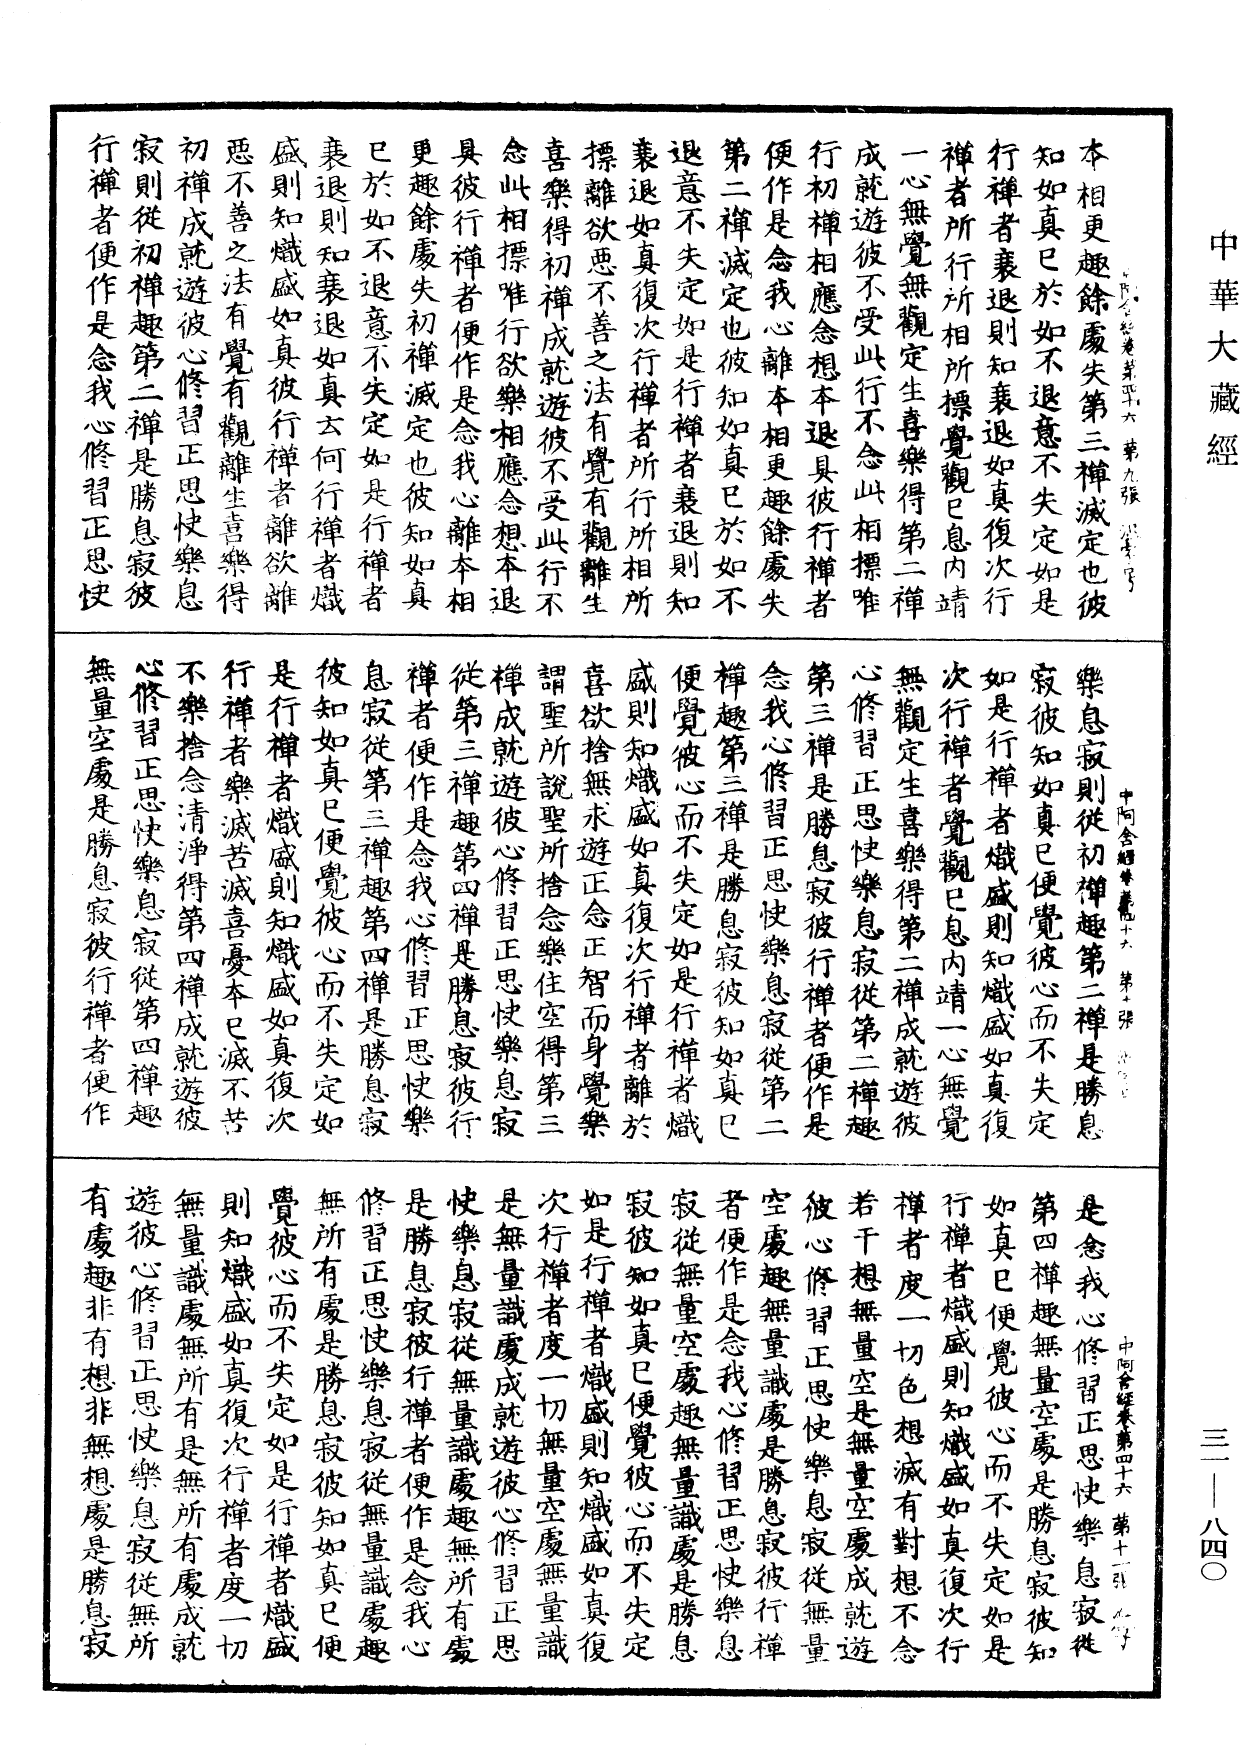 中華大藏經
三一—八四〇
本相更趣餘處失第三禪滅定也彼
知如真已於如不退意不失定如是
行禪者衰退則知衰退如真復次行
禪者所行所相所摽覺觀已息内靖
一心無覺無觀定生喜樂得第二禪
成就遊彼不受此行不念此相摽唯
行初禪相應念想本退具彼行禪者
便作是念我心離本相更趣餘處失
第二禪滅定也彼知如真已於如不
退意不失定如是行禪者衰退則知
衰退如真復次行禪者所行所相所
摽離欲惡不善之法有覺有觀離生
喜樂得初禪成就遊彼不受此行不
念此相摽唯行欲樂相應念想本退
具彼行禪者便作是念我心離本相
更趣餘處失初禪滅定也彼知如真
已於如不退意不失定如是行禪者
衰退則知衰退如真云何行禪者熾
盛則知熾盛如真彼行禪者離欲離
惡不善之法有覺有觀離生喜樂得
初禪成就遊彼心修習正思快樂息
寂則從初禪趣第二禪是勝息寂彼
行禪者便作是念我心修習正思快
中阿含經卷第四十六 第十張
樂息寂則從初禪趣第二禪是勝息
寂彼知如真已便覺彼心而不失定
如是行禪者熾盛則知熾盛如真復
次行禪者覺觀已息内靖一心無覺
無觀定生喜樂得第二禪成就遊彼
心修習正思快樂息寂從第二禪趣
第三禪是勝息寂彼行禪者便作是
念我心修習正思快樂息寂從第二
禪趣第三禪是勝息寂彼知如真已
便覺彼心而不失定如是行禪者熾
盛則知熾盛如真復次行禪者離於
喜欲捨無求遊正念正智而身覺樂
謂聖所說聖所捨念樂住空得第三
禪成就遊彼心修習正思快樂息寂
從第三禪趣第四禪是勝息寂彼行
禪者便作是念我心修習正思快樂
息寂從第三禪趣第四禪是勝息寂
彼知如真已便覺彼心而不失定如
是行禪者熾盛則知熾盛如真復次
行禪者樂滅苦滅喜憂本已滅不苦
不樂捨念清淨得第四禪成就遊彼
心修習正思快樂息寂從第四禪趣
無量空處是勝息寂彼行禪者便作
中阿含經卷第四十六 第十一張
是念我心修習正思快樂息寂從
第四禪趣無量空處是勝息寂彼知
如真已便覺彼心而不失定如是
行禪者熾盛則知熾盛如真復次行
禪者度一切色想滅有對想不念
若干想無量空是無量空處成就遊
彼心修習正思快樂息寂從無量
空處趣無量識處是勝息寂彼行禪
者便作是念我心修習正思快樂息
寂從無量空處趣無量識處是勝息
寂彼知如真已便覺彼心而不失定
如是行禪者熾盛則知熾盛如真復
次行禪者度一切無量空處無量識
是無量識處成就遊彼心修習正思
快樂息寂從無量識處趣無所有處
是勝息寂彼行禪者便作是念我心
修習正思快樂息寂從無量識處趣
無所有處是勝息寂彼知如真已便
覺彼心而不失定如是行禪者熾盛
則知熾盛如真復次行禪者度一切
無量識處無所有是無所有處成就
遊彼心修習正思快樂息寂從無所
有處趣非有想非無想處是勝息寂